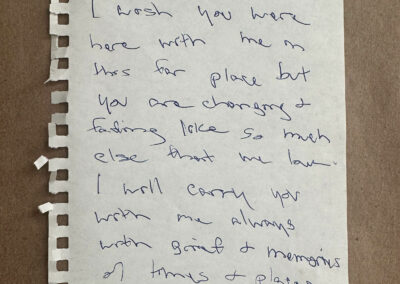 I wish you were
here with me in
this far place but
you are changing &
fading like so much
else that we love.
I will carry you
with me always
with grief & memories
of times & places